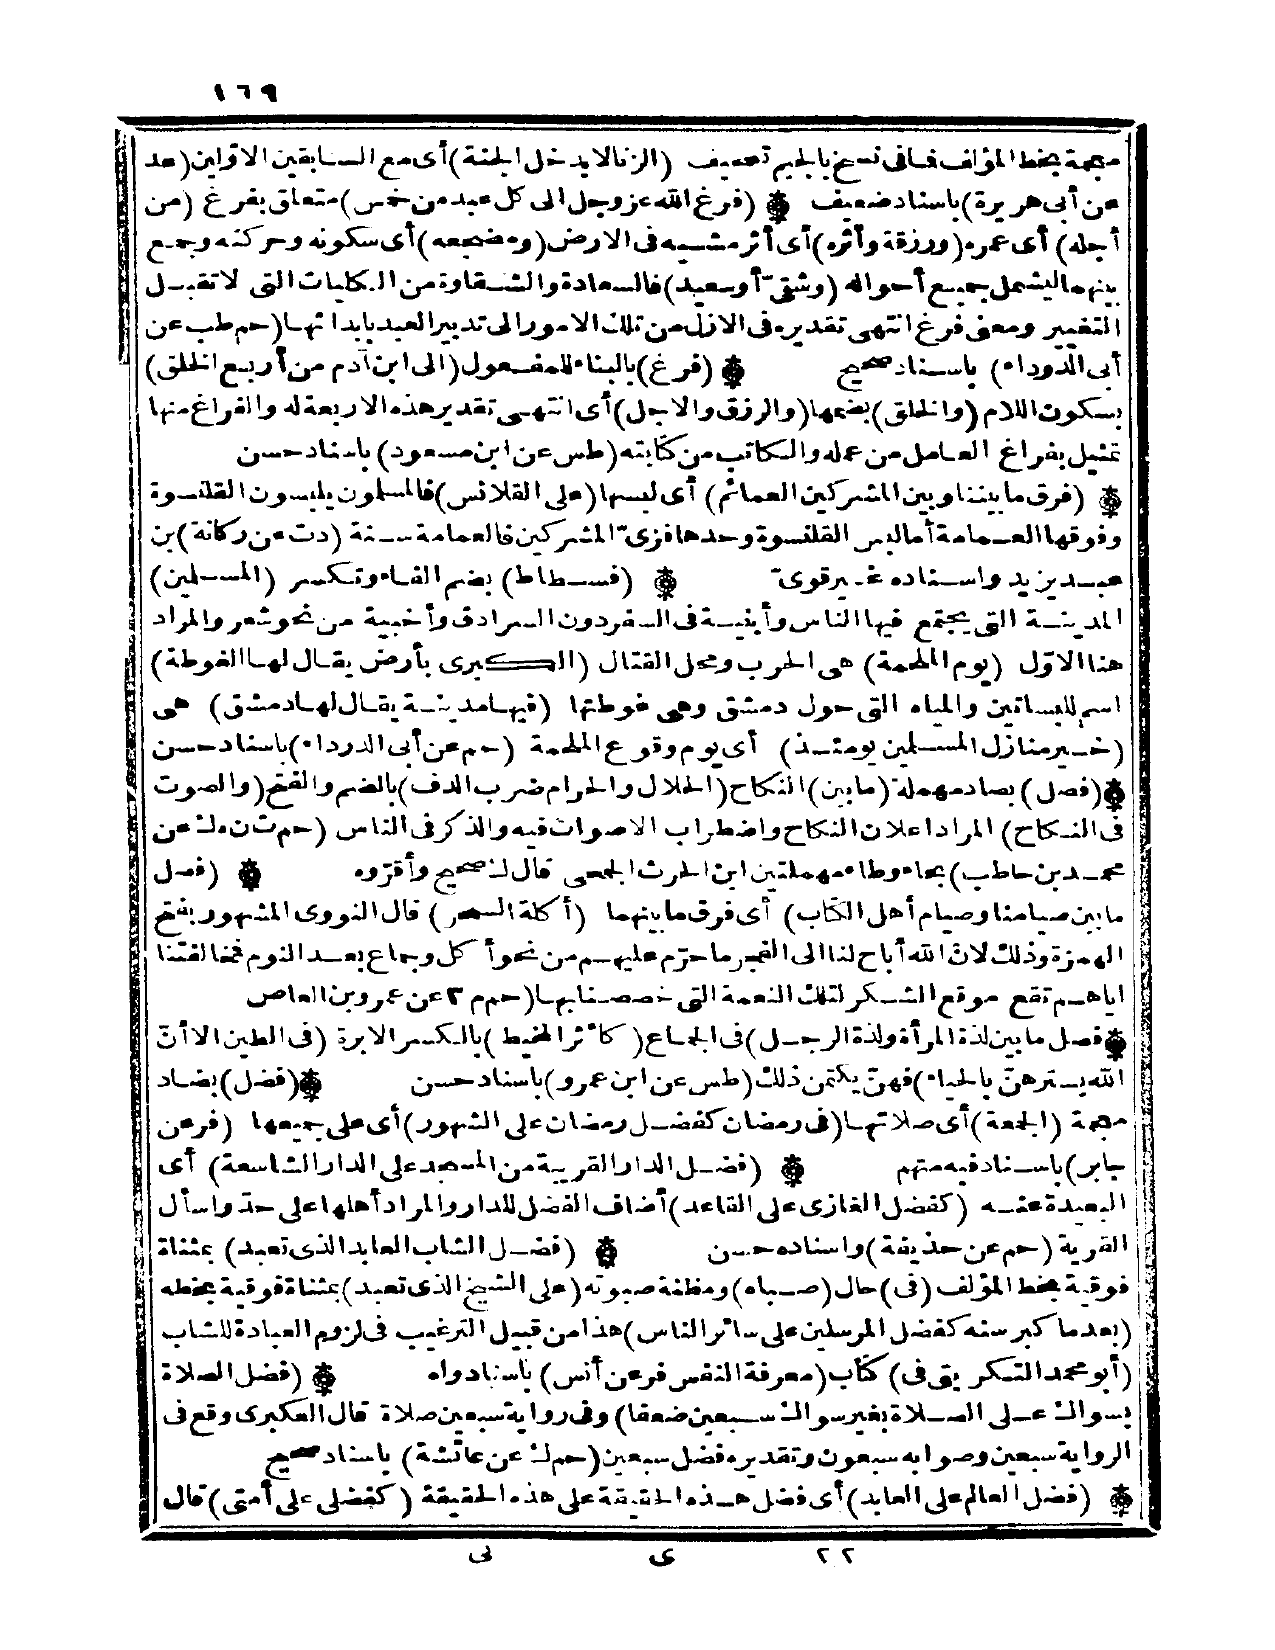 ١٦٩
معجمة بخط المؤلف فما فى نسخ بالجيم تصحيف (الزنا لا يدخل الجنة) أى مع السابقين الاوّلين (عد
عن أبى هريرة) باسناد ضعيف ۞ (فرغ الله عز وجل الى كل عبد من خمس) متعلق بفرغ (من
أجله) أى عمره (ورزقه وأثره) أى أثر مشيه فى الارض (ومضجعه) أى سكونه وحركته وجمع
بينهما ليشمل جميع أحواله (وشقىّ أو سعيد) فالسعادة والشقاوة من الكليات التى لا تقبل
التغيير ومعنى فرغ انتهى تقديره فى الازل من تلك الامور الى تدبير العبد بابدائها (حم طب عن
أبى الدرداء) باسناد صحيح ۞ (فرغ) بالبناء للمفعول (الى ابن آدم من أربع الخلق)
بسكون اللام (والخلق) بضمها (والرزق والاجل) أى انتهى تقدير هذه الاربعة له والفراغ منها
تمثيل بفراغ العامل من عمله والكاتب من كتابته (طس عن ابن مسعود) باسناد حسن
۞ (فرق ما بيننا وبين المشركين العمائم) أى لبسها (على القلانس) فالمسلمون يلبسون القلنسوة
وفوقها العمامة أما لبس القلنسوة وحدها فزىّ المشركين فالعمامة سنة (د ت عن ركانة) بن
عبد يزيد واسناده غير قوىّ ۞ (فسطاط) بضم الفاء وتكسر (المسلمين)
المدينة التى يجتمع فيها الناس وأبنية فى السفر دون السرادق وأخبية من نحو شعر والمراد
هنا الاوّل (يوم الملحمة) هى الحرب ومحل القتال (الكبرى بأرض يقال لها الغوطة)
اسم للبساتين والمياه التى حول دمشق وهى غوطتها (فيها مدينة يقال لها دمشق) هى
(خير منازل المسلمين يومئذ) أى يوم وقوع الملحمة (حم عن أبى الدرداء) باسناد حسن
۞ (فصل) بصاد مهملة (ما بين) النكاح (الحلال والحرام ضرب الدف) بالضم والفتح (والصوت
فى النكاح) المراد اعلان النكاح واضطراب الاصوات فيه والذكر فى الناس (حم ت ن ه ك عن
محمد بن حاطب) بحاء وطاء مهملتين ابن الحرث الجمحى قال ك صحيح وأقروه ۞ (فصل
ما بين صيامنا وصيام أهل الكتاب) أى فرق ما بينهما (أكلة السحر) قال النووى المشهور بفتح
الهمزة وذلك لانّ الله أباح لنا الى الفجر ما حرّم عليهم من نحو أكل وجماع بعد النوم فمخالفتنا
اياهم تقع موقع الشكر لتلك النعمة التى خصصنا بها (حم م ٣ عن عمرو بن العاص
۞ فصل ما بين لذة المرأة ولذة الرجل) فى الجماع (كأثر المخيط) بالكسر الابرة (فى الطين الا أنّ
الله يسترهنّ بالحياء) فهنّ يكتمن ذلك (طس عن ابن عمرو) باسناد حسن ۞ (فضل) بضاد
معجمة (الجمعة) أى صلاتها (فى رمضان كفضل رمضان على الشهور) أى على جميعها (فر عن
جابر) باسناد فيه متهم ۞ (فضل الدار القريبة من المسجد على الدار الشاسعة) أى
البعيدة عنه (كفضل الغازى على القاعد) أضاف الفضل للدار والمراد أهلها على حدّ واسأل
القرية (حم عن حذيفة) واسناده حسن ۞ (فضل الشاب العابد الذى تعبد) بمثناة
فوقية بخط المؤلف (فى) حال (صباه) ومظنة صبوته (على الشيخ الذى تعبد) بمثناة فوقية بخطه
(بعدما كبر سنه كفضل المرسلين على سائر الناس) هذا من قبيل الترغيب فى لزوم العبادة للشاب
(أبو محمد التكريتى فى) كتاب (معرفة النفس فر عن أنس) باسناد واه ۞ (فضل الصلاة
بسواك على الصلاة بغير سواك سبعين ضعفا) وفى رواية سبعين صلاة قال العكبرى وقع فى
الرواية سبعين وصوابه سبعون وتقديره فضل سبعين (حم ك عن عائشة) باسناد صحيح
۞ (فضل العالم على العابد) أى فضل هذه الحقيقة على هذه الحقيقة (كفضلى على أمتى) قال
٢٢ ى نى